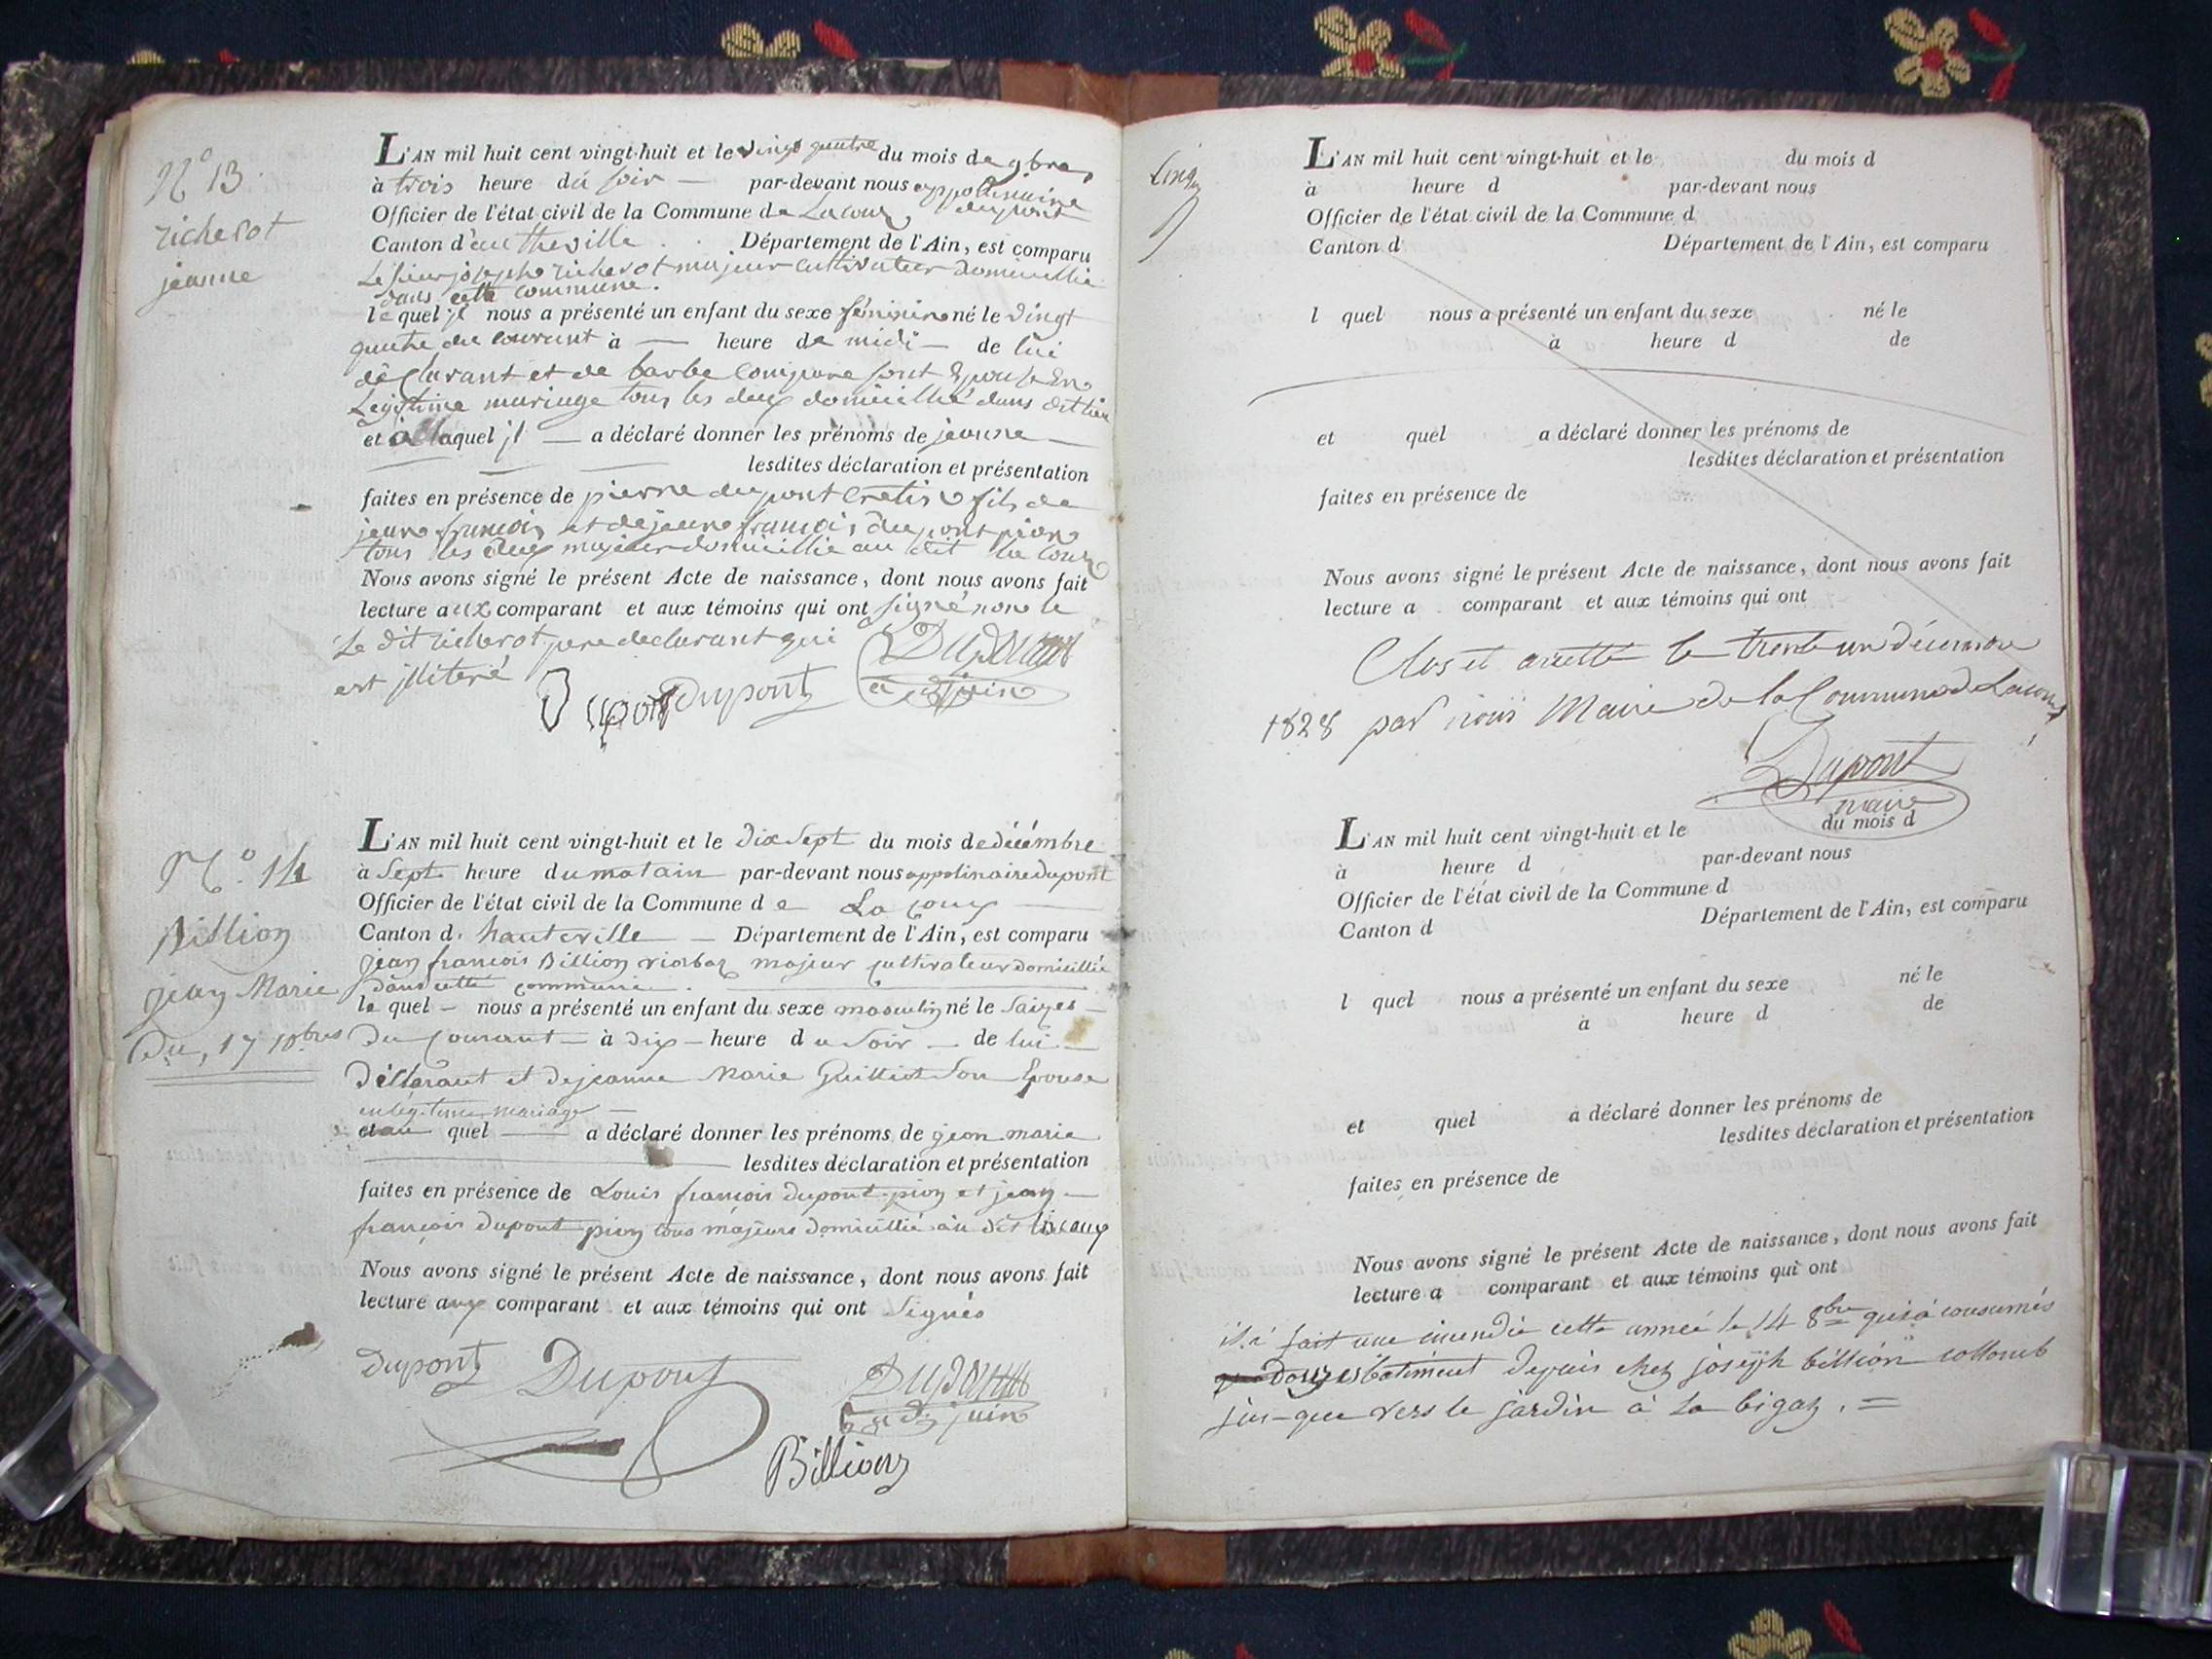 N° 13
richerot
jeanne
L'AN mil huit cent vingt-huit et le vingt quatre du mois de 9bre
à trois heure du soir — par-devant nous appolinaire dupont
Officier de l'état civil de la Commune de Lacoux
Canton d'autheville Département de l'Ain, est comparu
Le sieur joseph richerot majeur cultivateur domicillié
dans cette commune.
le quel il nous a présenté un enfant du sexe féminin né le vingt
quatre du courant à — heure de midi — de lui
déclarant et de barbe son Epouse En
Legitime mariage tous les deux domicillié dans dit lieu
et à laquel il — a déclaré donner les prénoms de jeanne —
lesdites déclaration et présentation
faites en présence de pierre dupont cretin fils de
jean françois et de jean françois dupont pion
tous les deux majeur domicillie au dit la coux
Nous avons signé le présent Acte de naissance, dont nous avons fait
lecture aux comparant et aux témoins qui ont signé non le
Le dit richerot pere declarant qui
est iliteré
Dupont Dupont Dupont
adjoin
N° 14
Billion
jean Marie
Du, 17 10bres
L'AN mil huit cent vingt-huit et le Dix Sept du mois de décémbre
à Sept heure du matain par-devant nous appolinaire dupont
Officier de l'état civil de la Commune d e La coux —
Canton d. hauteville — Département de l'Ain, est comparu
jean francois Billion majeur cultivateur domicillié
dans cette commune.
le quel — nous a présenté un enfant du sexe masculin né le Saizes —
Du Courant — à dix — heure d u Soir — de lui —
Déclarant et de jeanne Marie Guilliot Son Epouse
en légitime mariage —
et au quel — a déclaré donner les prénoms de jean marie
lesdites déclaration et présentation
faites en présence de Louis francois dupont pion et jean —
françois dupont pion tous majeurs domicillié au dit lacoux
Nous avons signé le présent Acte de naissance, dont nous avons fait
lecture aux comparant et aux témoins qui ont Signés
Dupont Dupont Dupont
adjuin
Billion
L'AN mil huit cent vingt-huit et le du mois d
à heure d par-devant nous
Officier de l'état civil de la Commune d
Canton d Département de l'Ain, est comparu
l quel nous a présenté un enfant du sexe né le
à heure d de
et quel a déclaré donner les prénoms de
lesdites déclaration et présentation
faites en présence de
Nous avons signé le présent Acte de naissance, dont nous avons fait
lecture a comparant et aux témoins qui ont
Clos et arretté le trente un décembre
1828 par nous Maire de la Commune de Lacoux
Dupont
maire
L'AN mil huit cent vingt-huit et le du mois d
à heure d par-devant nous
Officier de l'état civil de la Commune d
Canton d Département de l'Ain, est comparu
l quel nous a présenté un enfant du sexe né le
à heure d de
et quel a déclaré donner les prénoms de
lesdites déclaration et présentation
faites en présence de
Nous avons signé le présent Acte de naissance, dont nous avons fait
lecture a comparant et aux témoins qui ont
il à fait une incendie cette année le 14 8bre qui à consumés
batiment depuis chez joseph billion collomb
jus-que vers le jardin à la bigaz. =